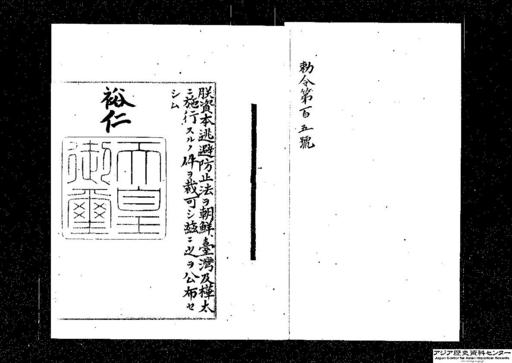 勅令第百五號
朕資本逃避防止法ヲ朝鮮、臺灣及樺太
ニ施行スルノ件ヲ裁可シ茲ニ之ヲ公布セ
シム
裕仁
天皇
御璽
アジア歴史資料センター
Japan Center for Asian Historical Records